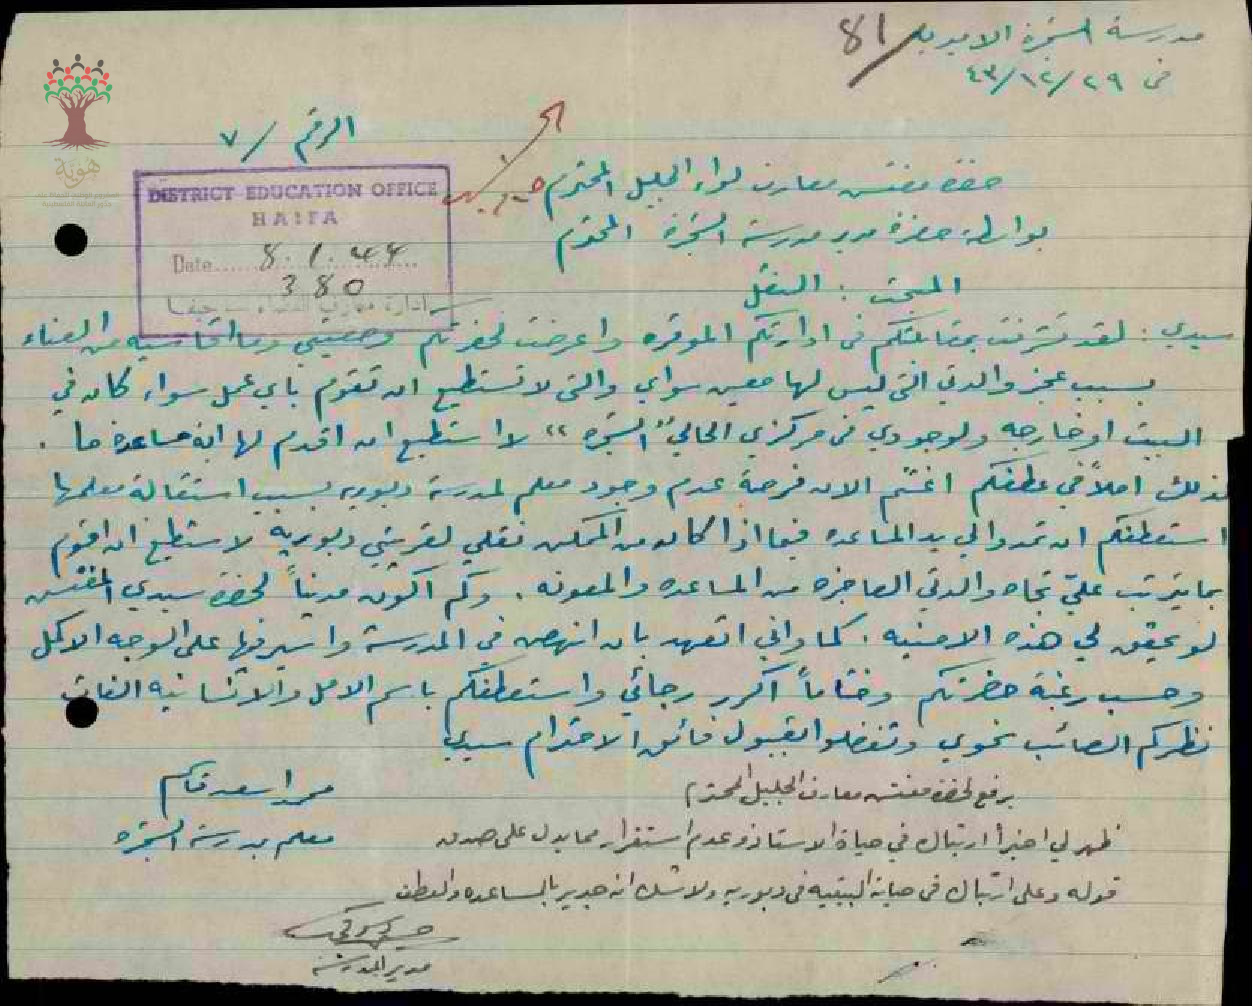 مدرسة الشجرة الاميرية
81
في ٢٩/١٢/٤٣
الرقم / ٧
DISTRICT EDUCATION OFFICE
HAIFA
Date 8.1.44
380
ادارة معارف اللواء - حيفا
هوية
حضرة مفتش معارف لواء الجليل المحترم
بواسطة حضرة مدير مدرسة الشجرة المحترم
المبحث : النقل
سيدي : لقد تشرفت بمقابلتكم في ادارتكم الموقره واعرضت لحضرتكم وضعيتي وما اقاسيه من العناء
بسبب عجز والدتي التي ليس لها معين سواي والتي لا تستطيع ان تقوم باي عمل سواء كان في
البيت او خارجه ولوجودي في مركزي الحالي "الشجره" لا استطيع ان اقدم لها اية مساعدة ما .
لذلك املاً في عطفكم اغتنم الان فرصة عدم وجود معلم لمدرسة دبوريه بسبب استقالة معلمها
استعطفكم ان تمدوا لي يد المساعده فيما اذا كان من الممكن نقلي لقريتي دبورية لاستطيع ان اقوم
بما يترتب علي تجاه والدتي العاجزه من المساعده والمعونه . وكم اكون مديناً لحضرة سيدي المفتش
لو تحقق لي هذه الامنيه . كما واني اتعهد بان انهض في المدرسة واسير فيها على الوجه الاكمل
وحسب رغبة حضرتكم وختاماً اكرر رجائي واستعطفكم باسم الامل والانسانيه الفات
نظركم الصائب نحوي وتفضلوا بقبول فائق الاحترام سيدي
محمد اسعد قاسم
معلم مدرسة الشجره
يرفع لحضرة مفتش معارف الجليل المحترم
ظهر لي اخيراً ارتباك في حياة الاستاذ وعدم استقرار مما يدل على صدق
قوله وعلى ارتباك في حياته البيتيه في دبوريه ولا شك انه جدير بالمساعده والعطف
مدير المدرسة